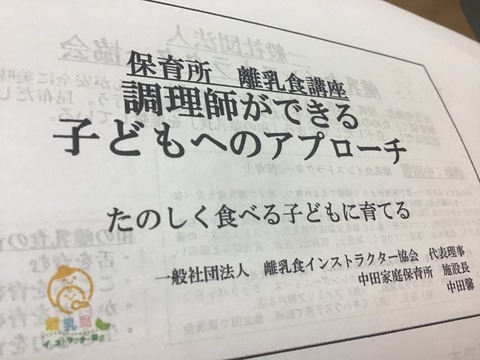 保育所 離乳食講座
調理師ができる
子どもへのアプローチ
たのしく食べる子どもに育てる
一般社団法人 離乳食インストラクター協会 代表理事
中田家庭保育所 施設長
中田馨
離乳食
インストラクター協会